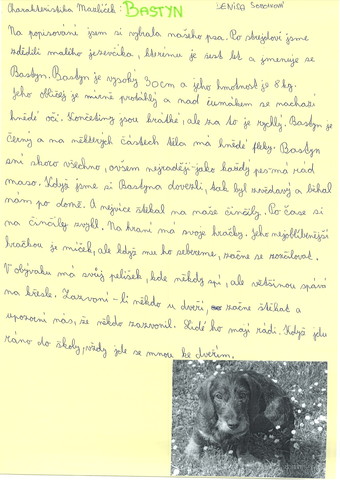 Charakteristika Mazlíček: BASTYN
Na popisování jsem si vybrala našeho psa. Po strejdovi jsme
zdědili malého jezevčíka, kterému je šest let a jmenuje se
Bastyn. Bastyn je vysoký 30cm a jeho hmotnost je 8kg.
Jeho obličej je mírně protáhlý a nad čumákem se nachází
hnědé oči. Končetiny jsou krátké, ale za to je rychlý. Bastyn je
černý a na některých částech těla má hnědé fleky. Bastyn
sní skoro všechno, ovšem nejraději-jako každý pes-má rád
maso. Když jsme si Bastyna dovezli, tak byl zvědavý a běhal
nám po domě. A nejvíce štěkal na naše činčily. Po čase si
na činčily zvykl. Na hraní má svoje hračky. Jeho nejoblíbenější
hračkou je míček, ale když mu ho sebereme, začne se rozčilovat.
V obýváku má svůj pelíšek, kde někdy spí, ale většinou spává
na křesle. Zazvoní-li někdo u dveří, začne štěkat a
upozorní nás, že někdo zazvonil. Lidé ho mají rádi. Když jdu
ráno do školy, vždy jde se mnou ke dveřím.